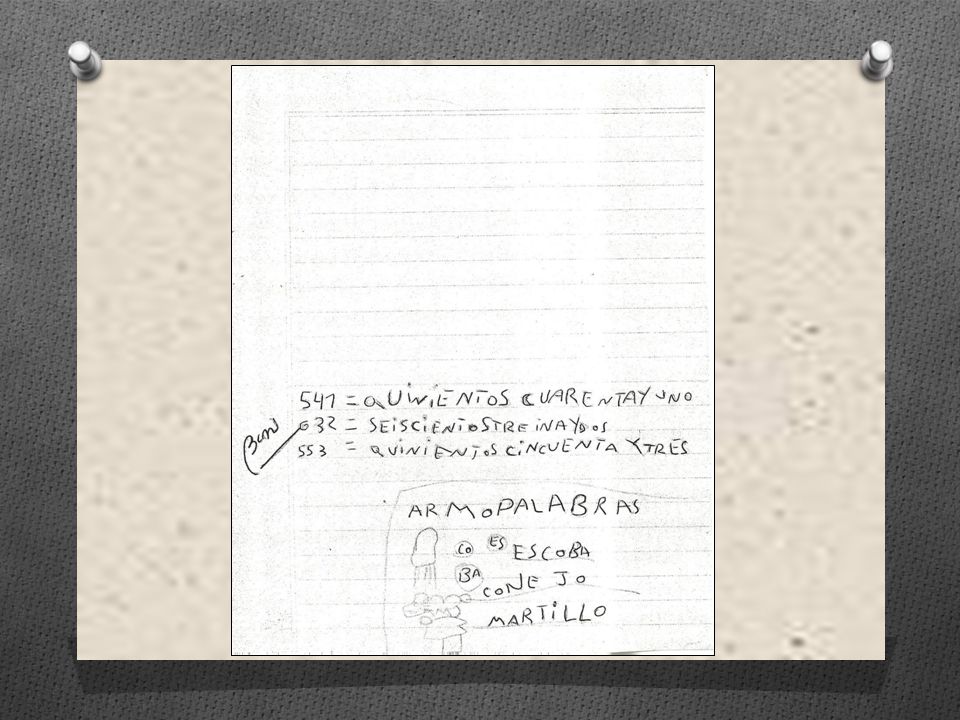 541 = QUINIENTOS CUARENTAY UNO
632 = SEISCIENTOSTREINAYDOS
553 = QUINIENTOS CINCUENTA YTRES
ARMOPALABRAS
CO ES ESCOBA
BA
CONEJO
MARTILLO